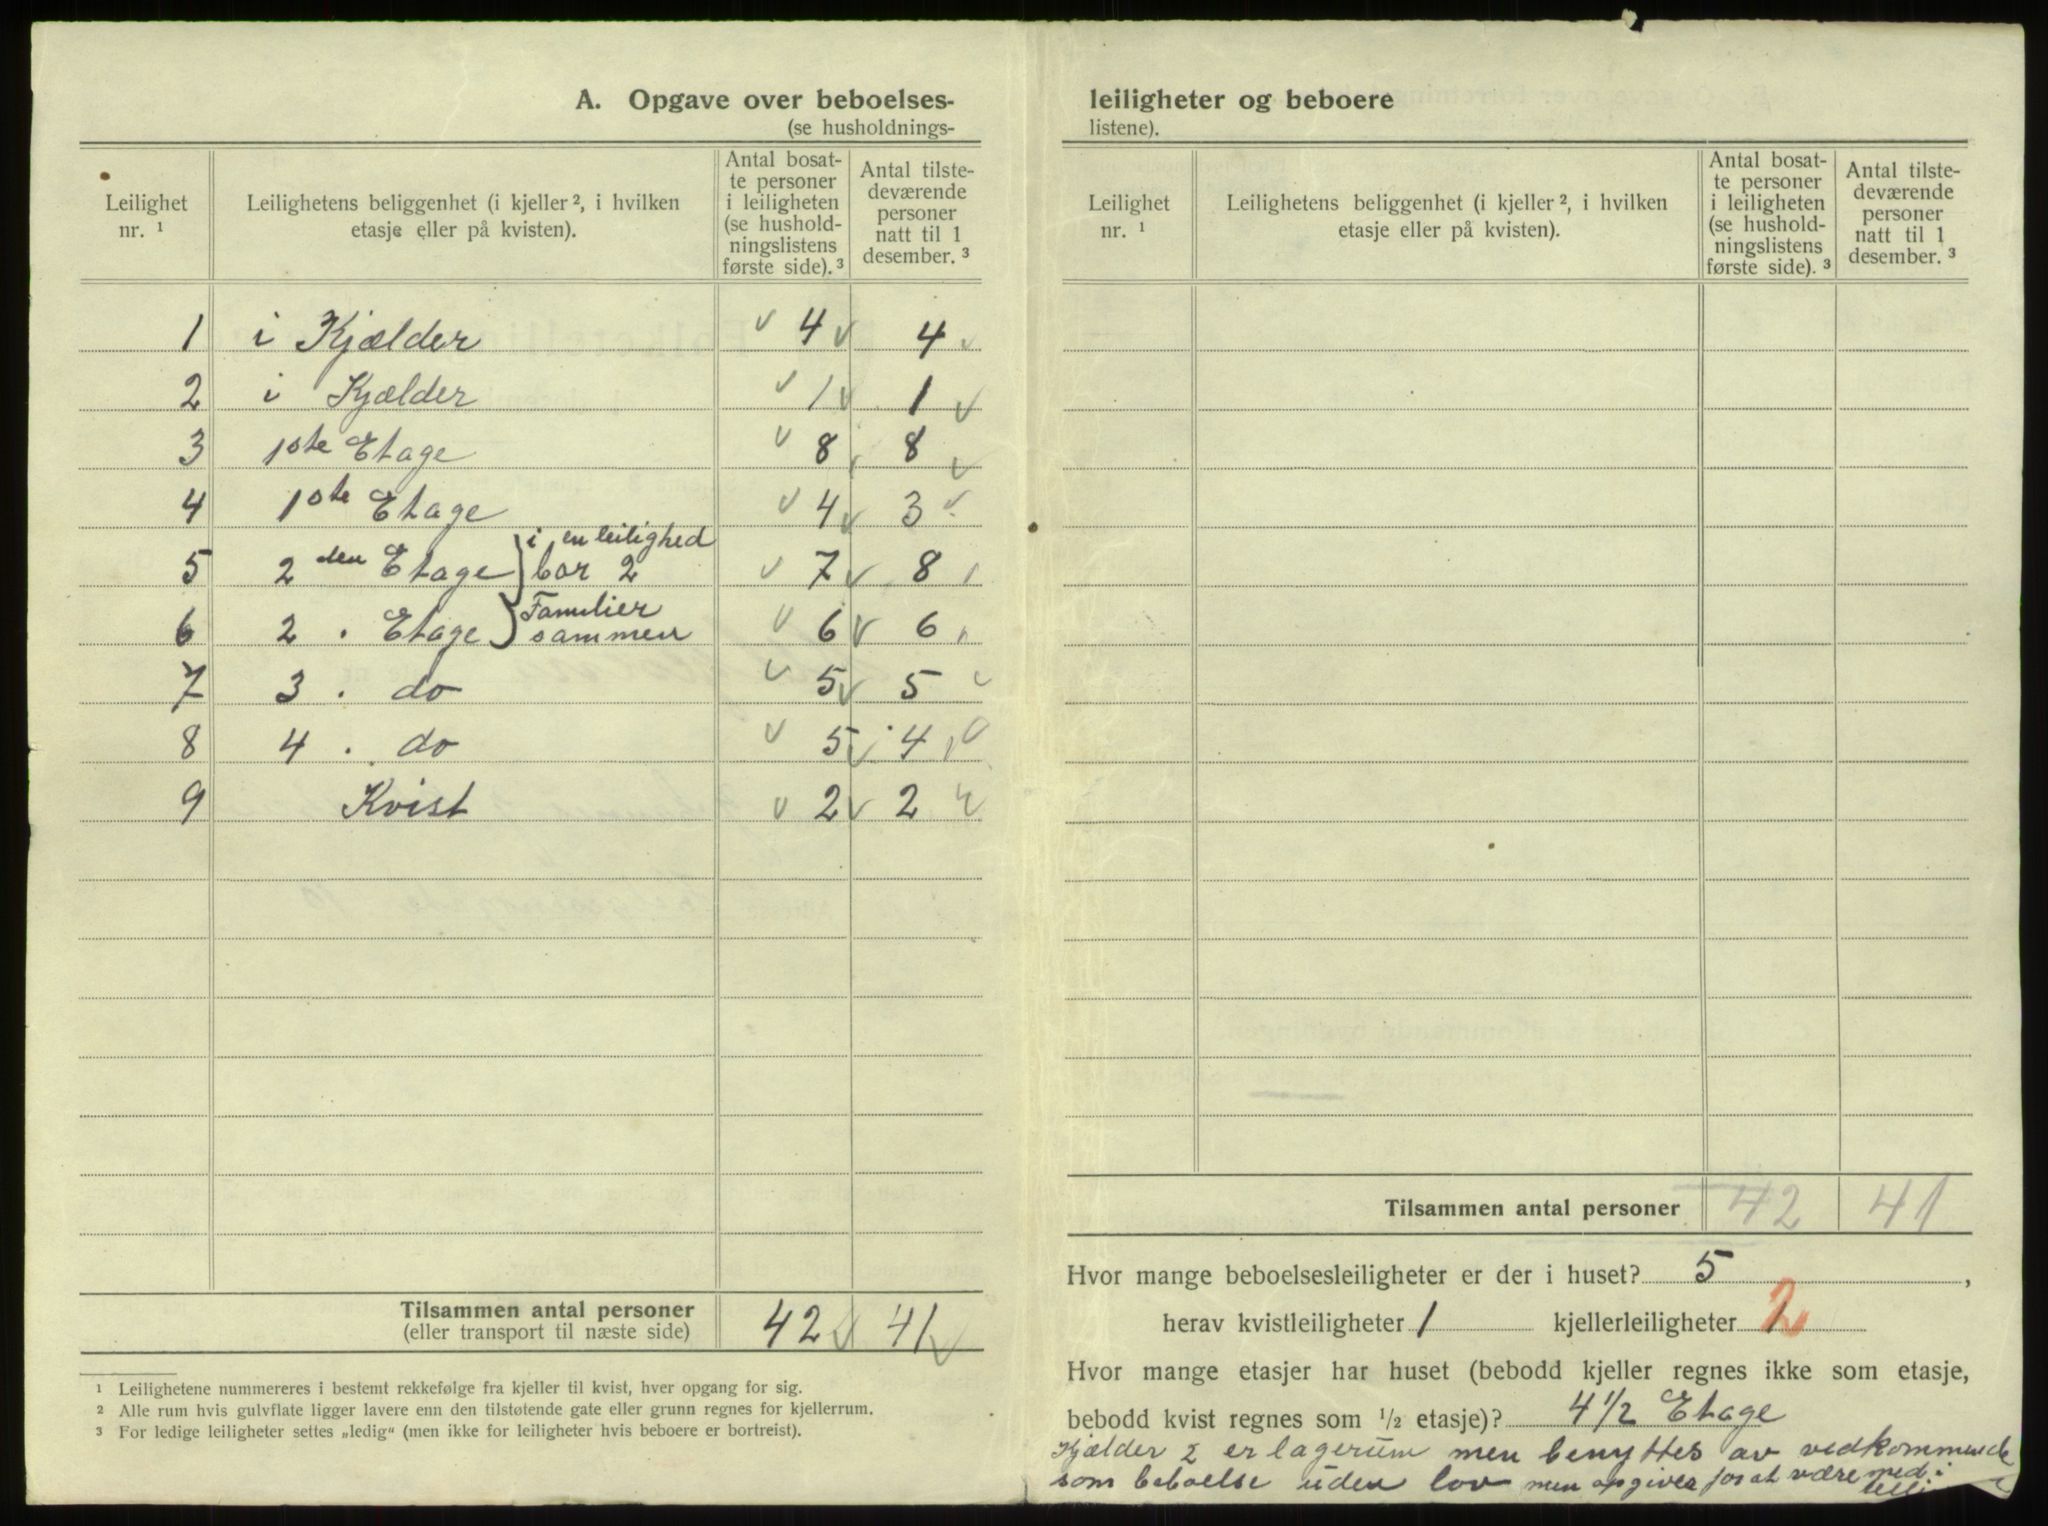 A. Opgave over beboelses-
(se husholdnings-
Leilighet nr. ¹ | Leilighetens beliggenhet (i kjeller ², i hvilken etasje eller på kvisten). | Antal bosatte personer i leiligheten (se husholdningslistens første side). ³ | Antal tilstedeværende personer natt til 1 desember. ³
1 i Kjælder 4 4
2 i Kjælder 1 1
3 1ste Etage 8 8
4 1ste Etage 4 3
i en leilighed
5 2den Etage bor 2 7 8
Familier
6 2 . Etage sammen 6 6
7 3 . do 5 5
8 4 . do 5 4
9 Kvist 2 2
Tilsammen antal personer
(eller transport til næste side) 42 41
¹ Leilighetene nummereres i bestemt rekkefølge fra kjeller til kvist, hver opgang for sig.
² Alle rum hvis gulvflate ligger lavere enn den tilstøtende gate eller grunn regnes for kjellerrum.
³ For ledige leiligheter settes „ledig“ (men ikke for leiligheter hvis beboere er bortreist).
leiligheter og beboere
listene).
Leilighet nr. ¹ | Leilighetens beliggenhet (i kjeller ², i hvilken etasje eller på kvisten). | Antal bosatte personer i leiligheten (se husholdningslistens første side). ³ | Antal tilstedeværende personer natt til 1 desember. ³
Tilsammen antal personer 42 41
Hvor mange beboelsesleiligheter er der i huset? 5 ,
herav kvistleiligheter 1 kjellerleiligheter 1 2
Hvor mange etasjer har huset (bebodd kjeller regnes ikke som etasje,
bebodd kvist regnes som ½ etasje)? 4 ½ Etage
Kjælder 2 er lagerum men benyttes av vedkommende
som beboelse uden lov men opgives for at være med i